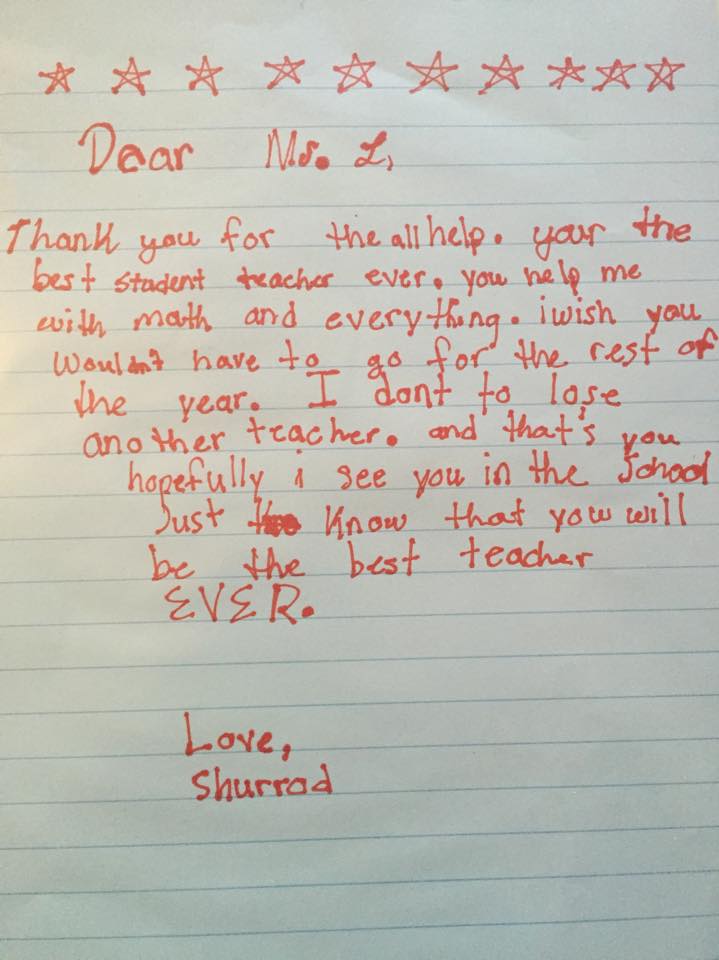 Dear Ms. L,
Thank you for the all help. your the
best student teacher ever. you help me
with math and everything. i wish you
wouldn't have to go for the rest of
the year. I dont to lose
another teacher. and that's you
hopefully i see you in the school
Just know that you will
be the best teacher
EVER.
Love,
Shurrod